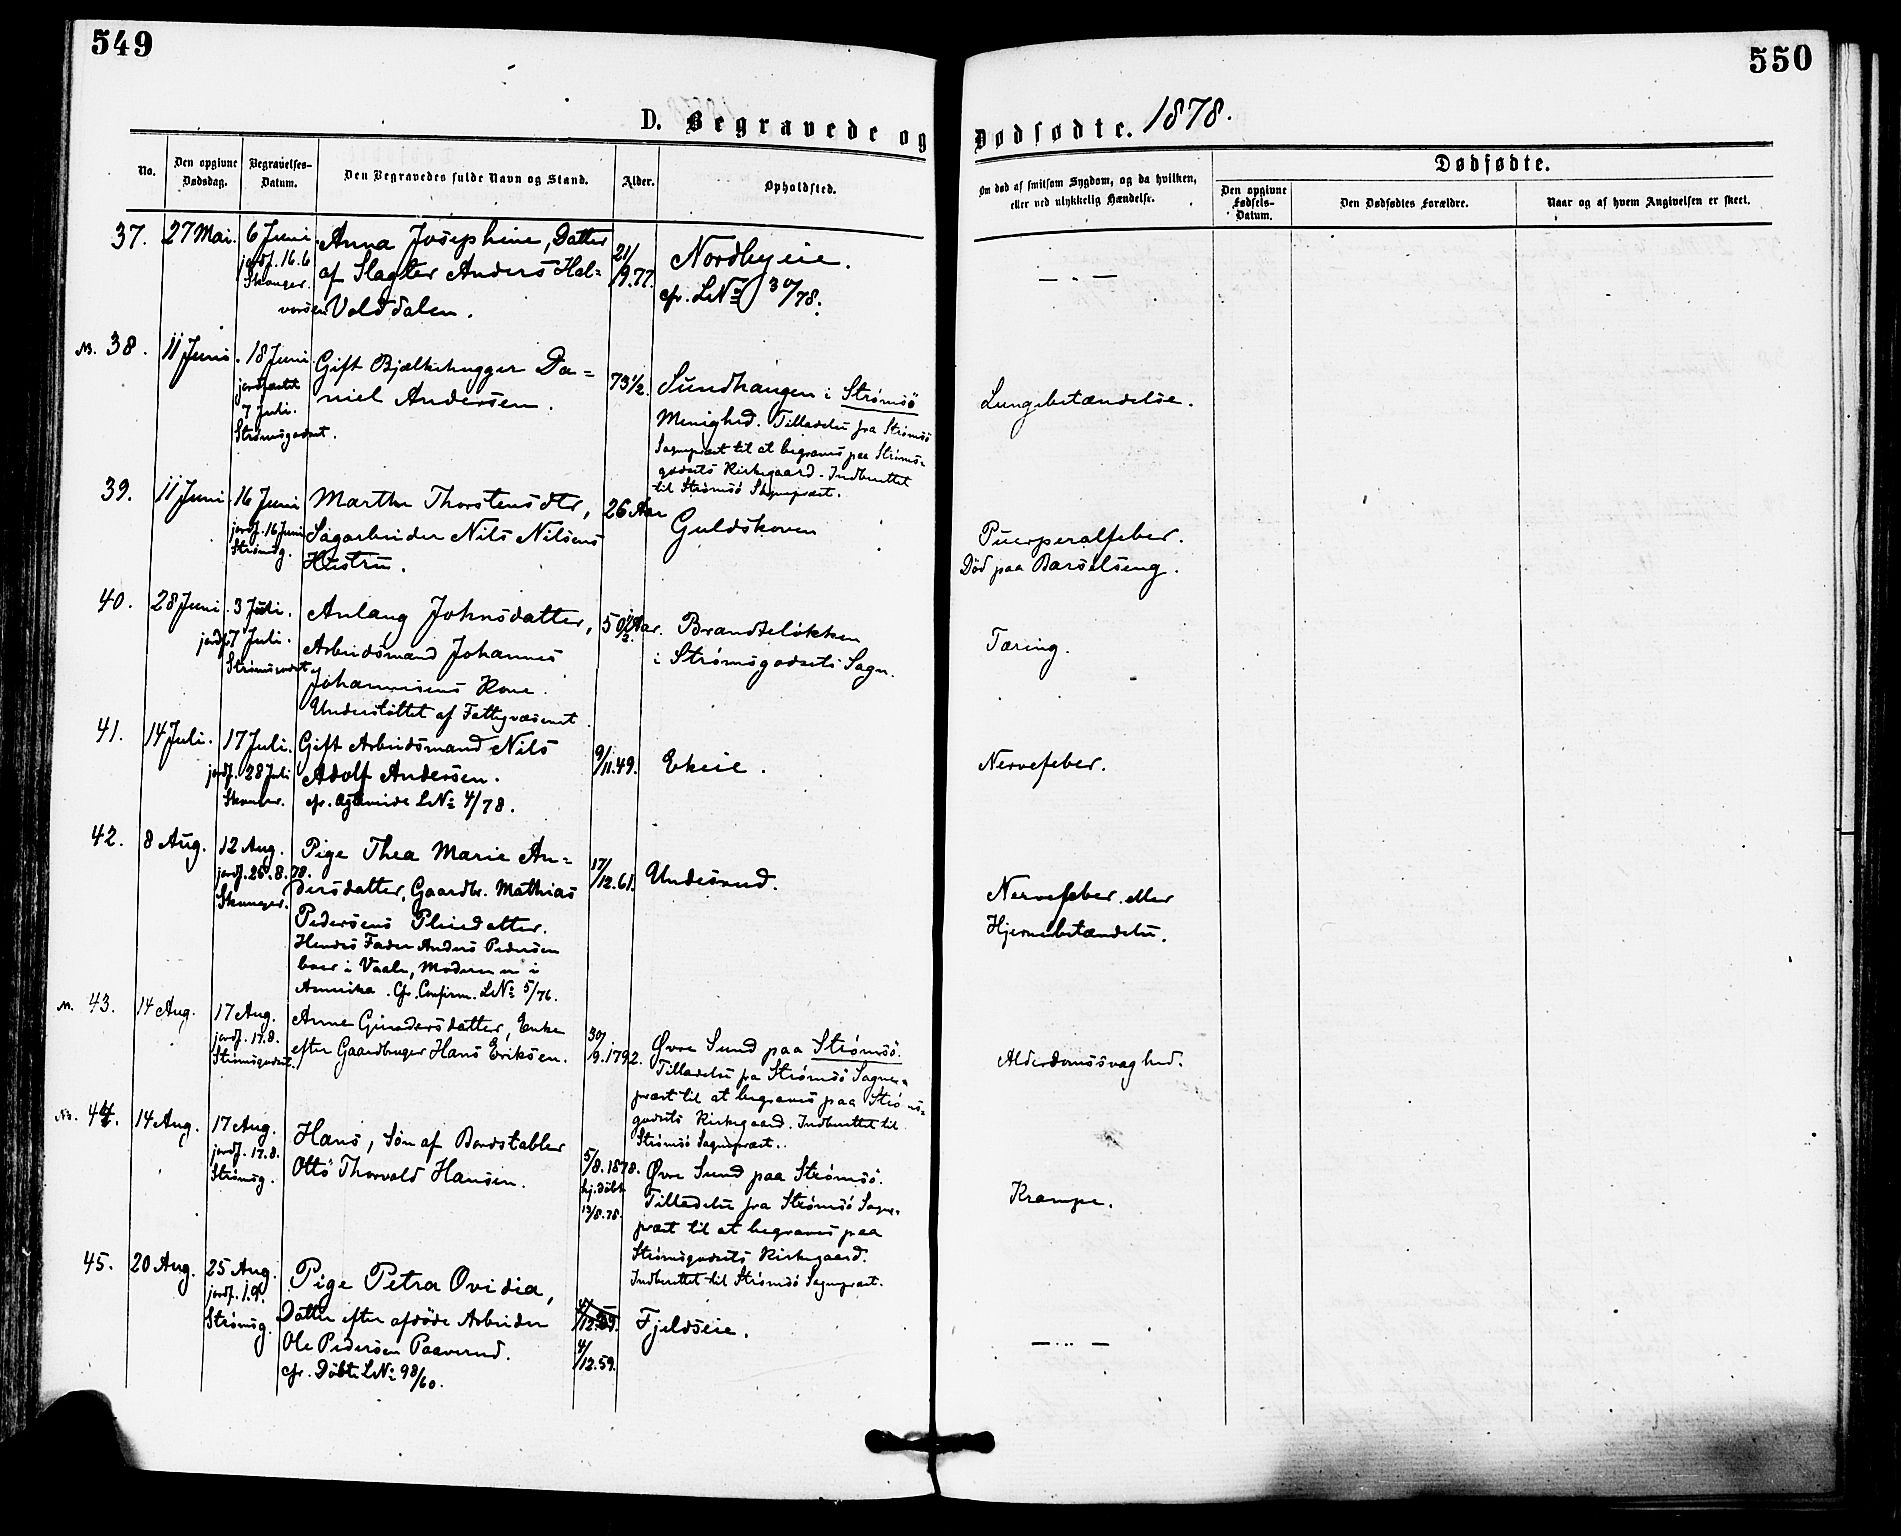 549
550
D. Begravede og Dødfødte. 1878.
No.
Den opgivne Dødsdag.
Begravelses-Datum.
Den Begravedes fulde Navn og Stand.
Alder.
Opholdsted.
Om død af smitsom Sygdom, og da hvilken, eller ved ulykkelig Hændelse.
Dødfødte.
Den opgivne Fødsels-Datum.
Den Dødfødtes Forældre.
Naar og af hvem Angivelsen er skeet.
37. 27 Mai. 6 Juni
jordf. 16.6
Skouger.
Anna Josephine, Datter
af Slagter Anders Hal-
vorsen Velddalen.
21/9.77.
Nordbyeie.
cfr. L No 30/78.
— . —
NB. 38. 11 Juni. 18 Juni
jordfæstet
7 Juli.
Strømsgodset.
Gift Bjælkehugger Da-
niel Andersen.
73 1/2.
Sundhaugen i Strømsö
Menighed. Tilladelse fra Strömsö
Sognepræst til at begraves paa Ströms-
godsets Kirkegaard. Indberettet
til Strømsö Sognepræst.
Lungebetændelse.
39. 11 Juni 16 Juni
jordf. 16 Juni
Strømsg.
Marthe Thorstensdtr,
Sagarbeider Nils Nilsens
Hustru.
26 Aar
Guldskoven
Puerperalfeber.
Død paa Barselseng.
40. 28 Juni. 3 Juli.
jordf. 7 Juli.
Strømsgodset
Anlaug Johnsdatter,
Arbeidsmand Johannes
Johannesens Kone.
Understøttet af Fattigvæsenet.
50 1/2 Aar.
Brandteløkken
i Strømsgodsets Sogn.
Tæring.
41. 14 Juli. 17 Juli.
jordf. 28 Juli
Skouger.
Gift Arbeidsmand Nils
Adolf Andersen.
cfr. Ægteviede L No 4/78.
9/11.49.
Ekeie.
Nervefeber.
42. 8 Aug. 12 Aug.
jordf. 25.8.78.
Skouger.
Pige Thea Marie An-
dersdatter, Gaardbr. Mathias
Pedersens Pleiedatter.
Hendes Fader Anders Pedersen
boer i Vaale, Moderen er i
Amerika. Cfr. Confirm. L No 5/76.
17/12.61.
Undesrud.
Nervefeber eller
Hjernebetændelse.
N. 43. 14 Aug. 17 Aug.
jordf. 17.8.
Strömsgodset.
Anne Gundersdatter, Enke
efter Gaardbruger Hans Eriksen.
30/9.1792.
Øvre Sund paa Strømsö.
Tilladelse fra Strömsö Sogne-
præst til at begraves paa Ströms-
godsets Kirkegaard. Indberettet til
Strömsö Sognepræst.
Alderdomssvaghed.
NB. 44. 14 Aug. 17 Aug.
jordf. 17.8.
Strömsg.
Hans, Søn af Bordstabler
Otto Thorvald Hansen.
5/8.1878.
hj.døbt
13/8.78.
Øvre Sund paa Strømsö.
Tilladelse fra Strømsö Sogne-
præst til at begraves paa
Strömsgodsets Kirkegaard.
Indberettet til Strömsö Sognepræst.
Krampe.
45. 20 Aug. 25 Aug.
jordf. 1.9.
Strömsg.
Pige Petra Ovidia,
Datter efter afdøde Arbeider
Ole Pedersen Paaverud.
cfr. Döbte L No 98/60.
4/12.59.
Fjeldseie.
— .. —